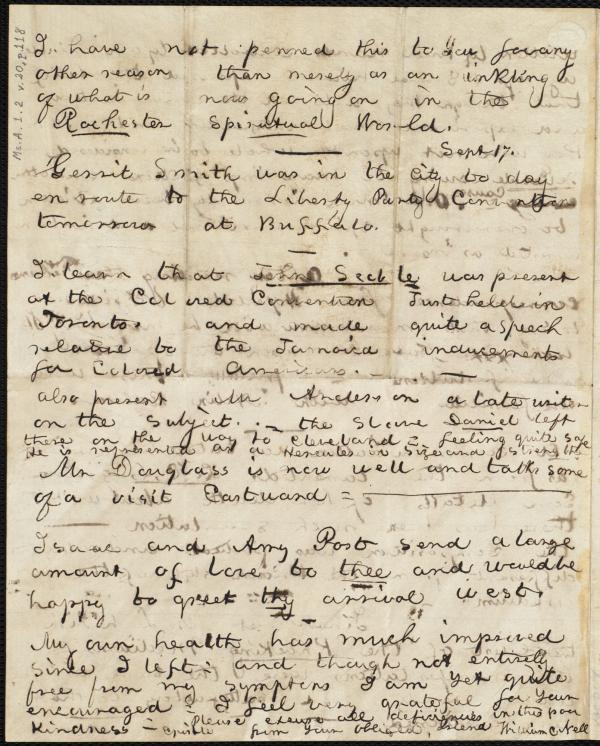 Ms. A. 1. 2 v. 20, p. 118
I have not penned this to You for any
other reason than merely as an inkling
of what is now going on in the
Rochester Spiritual World.
Sept. 17.
Gerrit Smith was in the City to day
en route to the Liberty Party Convention
tomorrow at Buffalo.
I learn that John Scoble was present
at the Colored Convention Just held in
Toronto. and made quite a speech
relative to the Jamaica inducements
for Colored Americans.
also present Anderson a late writer
on the Subject. - the Slave Daniel left
there on the way to Cleveland = feeling quite safe
He is represented as a Hercules in Size and strength
Mr. Douglass is now well and talks some
of a visit Eastward =
Isaac and Amy Post send a large
amount of love to thee and would be
happy to greet thy arrival west.
My own health has much improved
since I left: and though not entirely
free from my symptoms I am yet quite
encouraged = I feel very grateful for Your
kindness = Please excuse all deficiencies in this poor
epistle from Your obliged friend William C Nell